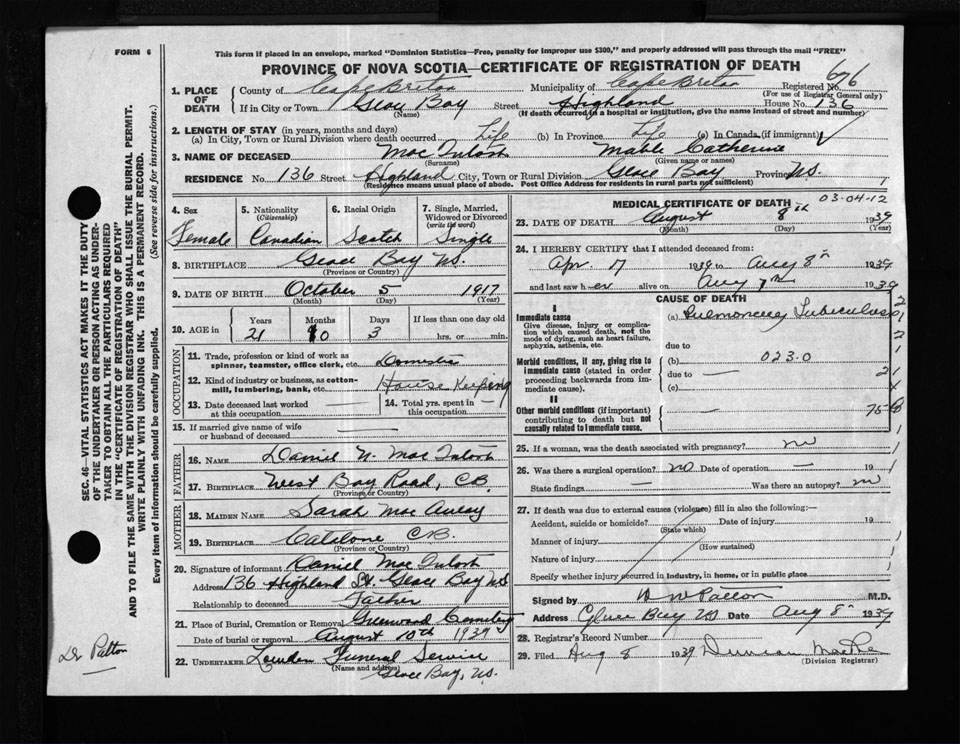 FORM 6
This form if placed in an envelope, marked "Dominion Statistics—Free, penalty for improper use $300," and properly addressed will pass through the mail "FREE"
PROVINCE OF NOVA SCOTIA—CERTIFICATE OF REGISTRATION OF DEATH
676
1. PLACE OF DEATH County of Cape Breton Municipality of Cape Breton Registered No.
(For use of Registrar General only)
If in City or Town Glace Bay Street Highland House No. 136
(Name) (If death occurred in a hospital or institution, give the name instead of street and number)
2. LENGTH OF STAY (in years, months and days)
(a) In City, Town or Rural Division where death occurred Life (b) In Province Life (c) In Canada, (if immigrant)
3. NAME OF DECEASED Mac Intosh Mable Catherine
(Surname) (Given name or names)
RESIDENCE No. 136 Street Highland City, Town or Rural Division Glace Bay Province N.S.
(Residence means usual place of abode. Post Office Address for residents in rural parts not sufficient)
SEC. 46—VITAL STATISTICS ACT MAKES IT THE DUTY
OF THE UNDERTAKER OR PERSON ACTING AS UNDER-
TAKER TO OBTAIN ALL THE PARTICULARS REQUIRED
IN THE "CERTIFICATE OF REGISTRATION OF DEATH"
AND TO FILE THE SAME WITH THE DIVISION REGISTRAR WHO SHALL ISSUE THE BURIAL PERMIT.
WRITE PLAINLY WITH UNFADING INK. THIS IS A PERMANENT RECORD.
Every item of information should be carefully supplied. (See reverse side for instructions.)
4. Sex 5. Nationality (Citizenship) 6. Racial Origin 7. Single, Married, Widowed or Divorced (write the word)
Female Canadian Scotch Single
8. BIRTHPLACE Glace Bay N.S.
(Province or Country)
9. DATE OF BIRTH October 5 1917
(Month) (Day) (Year)
10. AGE in Years Months Days If less than one day old
21 10 3 hrs. or min.
OCCUPATION
11. Trade, profession or kind of work as spinner, teamster, office clerk, etc. Domestic
12. Kind of industry or business, as cotton-mill, lumbering, bank, etc. House Keeping
13. Date deceased last worked at this occupation 14. Total yrs. spent in this occupation —
15. If married give name of wife or husband of deceased —
FATHER
16. NAME Daniel N. Mac Intosh
17. BIRTHPLACE West Bay Road, C.B.
(Province or Country)
MOTHER
18. MAIDEN NAME Sarah Mac Aulay
19. BIRTHPLACE C.B.
(Province or Country)
20. Signature of informant Daniel Mac Intosh
Address 136 Highland St. Glace Bay N.S
Relationship to deceased Father
21. Place of Burial, Cremation or Removal Greenwood Cemetery
Date of burial or removal August 10th 1939
22. UNDERTAKER Funeral Service
(Name and address)
Glace Bay, N.S.
Dr Patton
MEDICAL CERTIFICATE OF DEATH 03-04-12
23. DATE OF DEATH August 8th 1939
(Month) (Day) (Year)
24. I HEREBY CERTIFY that I attended deceased from:
Apr. 17 1939 to Aug 8th 1939
and last saw her alive on Aug 7th 1939
CAUSE OF DEATH
I
Immediate cause (a) Pulmonary Tuberculosis
Give disease, injury or complication which caused death, not the mode of dying, such as heart failure, asphyxia, asthenia, etc.
due to
Morbid conditions, if any, giving rise to immediate cause (stated in order proceeding backwards from immediate cause).
(b) 023.0
due to —
(c)
II
Other morbid conditions (if important) contributing to death but not causally related to immediate cause. —
25. If a woman, was the death associated with pregnancy? no
26. Was there a surgical operation? no Date of operation — 19
State findings — Was there an autopsy? no
27. If death was due to external causes (violence) fill in also the following:—
Accident, suicide or homicide? Date of injury 19
(State which)
Manner of injury
(How sustained)
Nature of injury
Specify whether injury occurred in industry, in home, or in public place
Signed by Patton M.D.
Address Glace Bay NS Date Aug 8th 1939
28. Registrar's Record Number
29. Filed Aug 8 1939 Duncan
(Division Registrar)